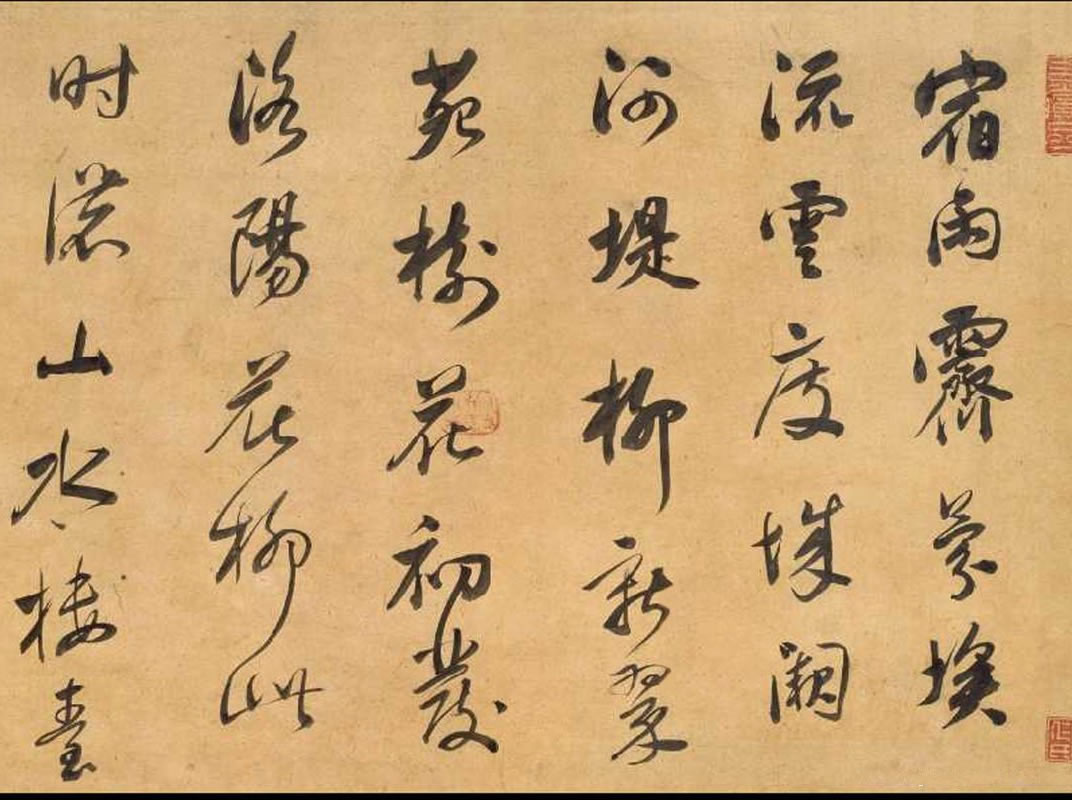 宿雨霽氛埃
流雲度城闕
河堤柳新翠
苑樹花初發
洛陽花柳此
时濃山水樓臺